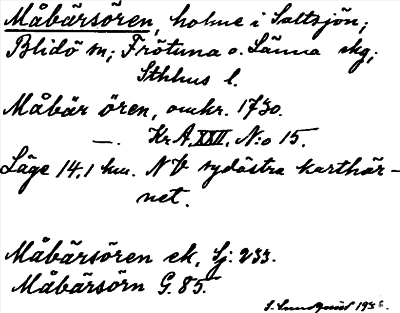 Måbärsören, holme i Saltsjön;
Blidö sn; Frötuna o. Länna skg;
Sthlms l.
Måbär ören, omkr. 1730.
—. Kr.A. XXII. N:o 15.
Läge 14,1 km. NV sydöstra karthör-
net.
Måbärsören ek. Sj: 233.
Måbärsörn G. 85.
S. Lundqvist